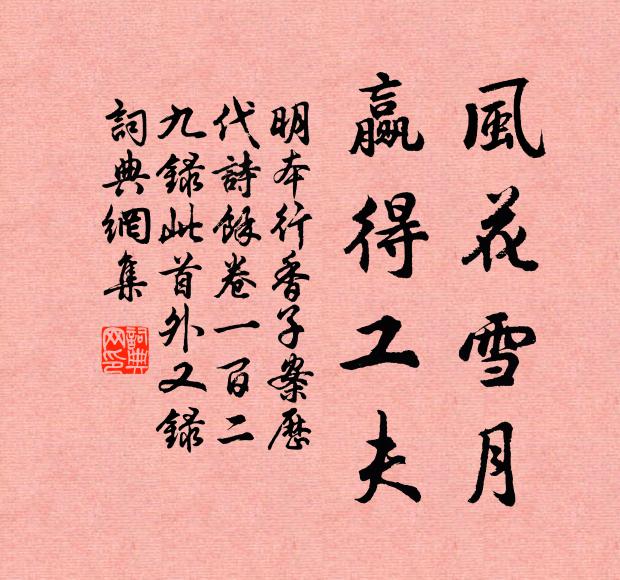 風花雪月
贏得工夫
明本行香子案歷
代詩餘卷一百二
九錄此首外又錄
詞典網集
詞典网印